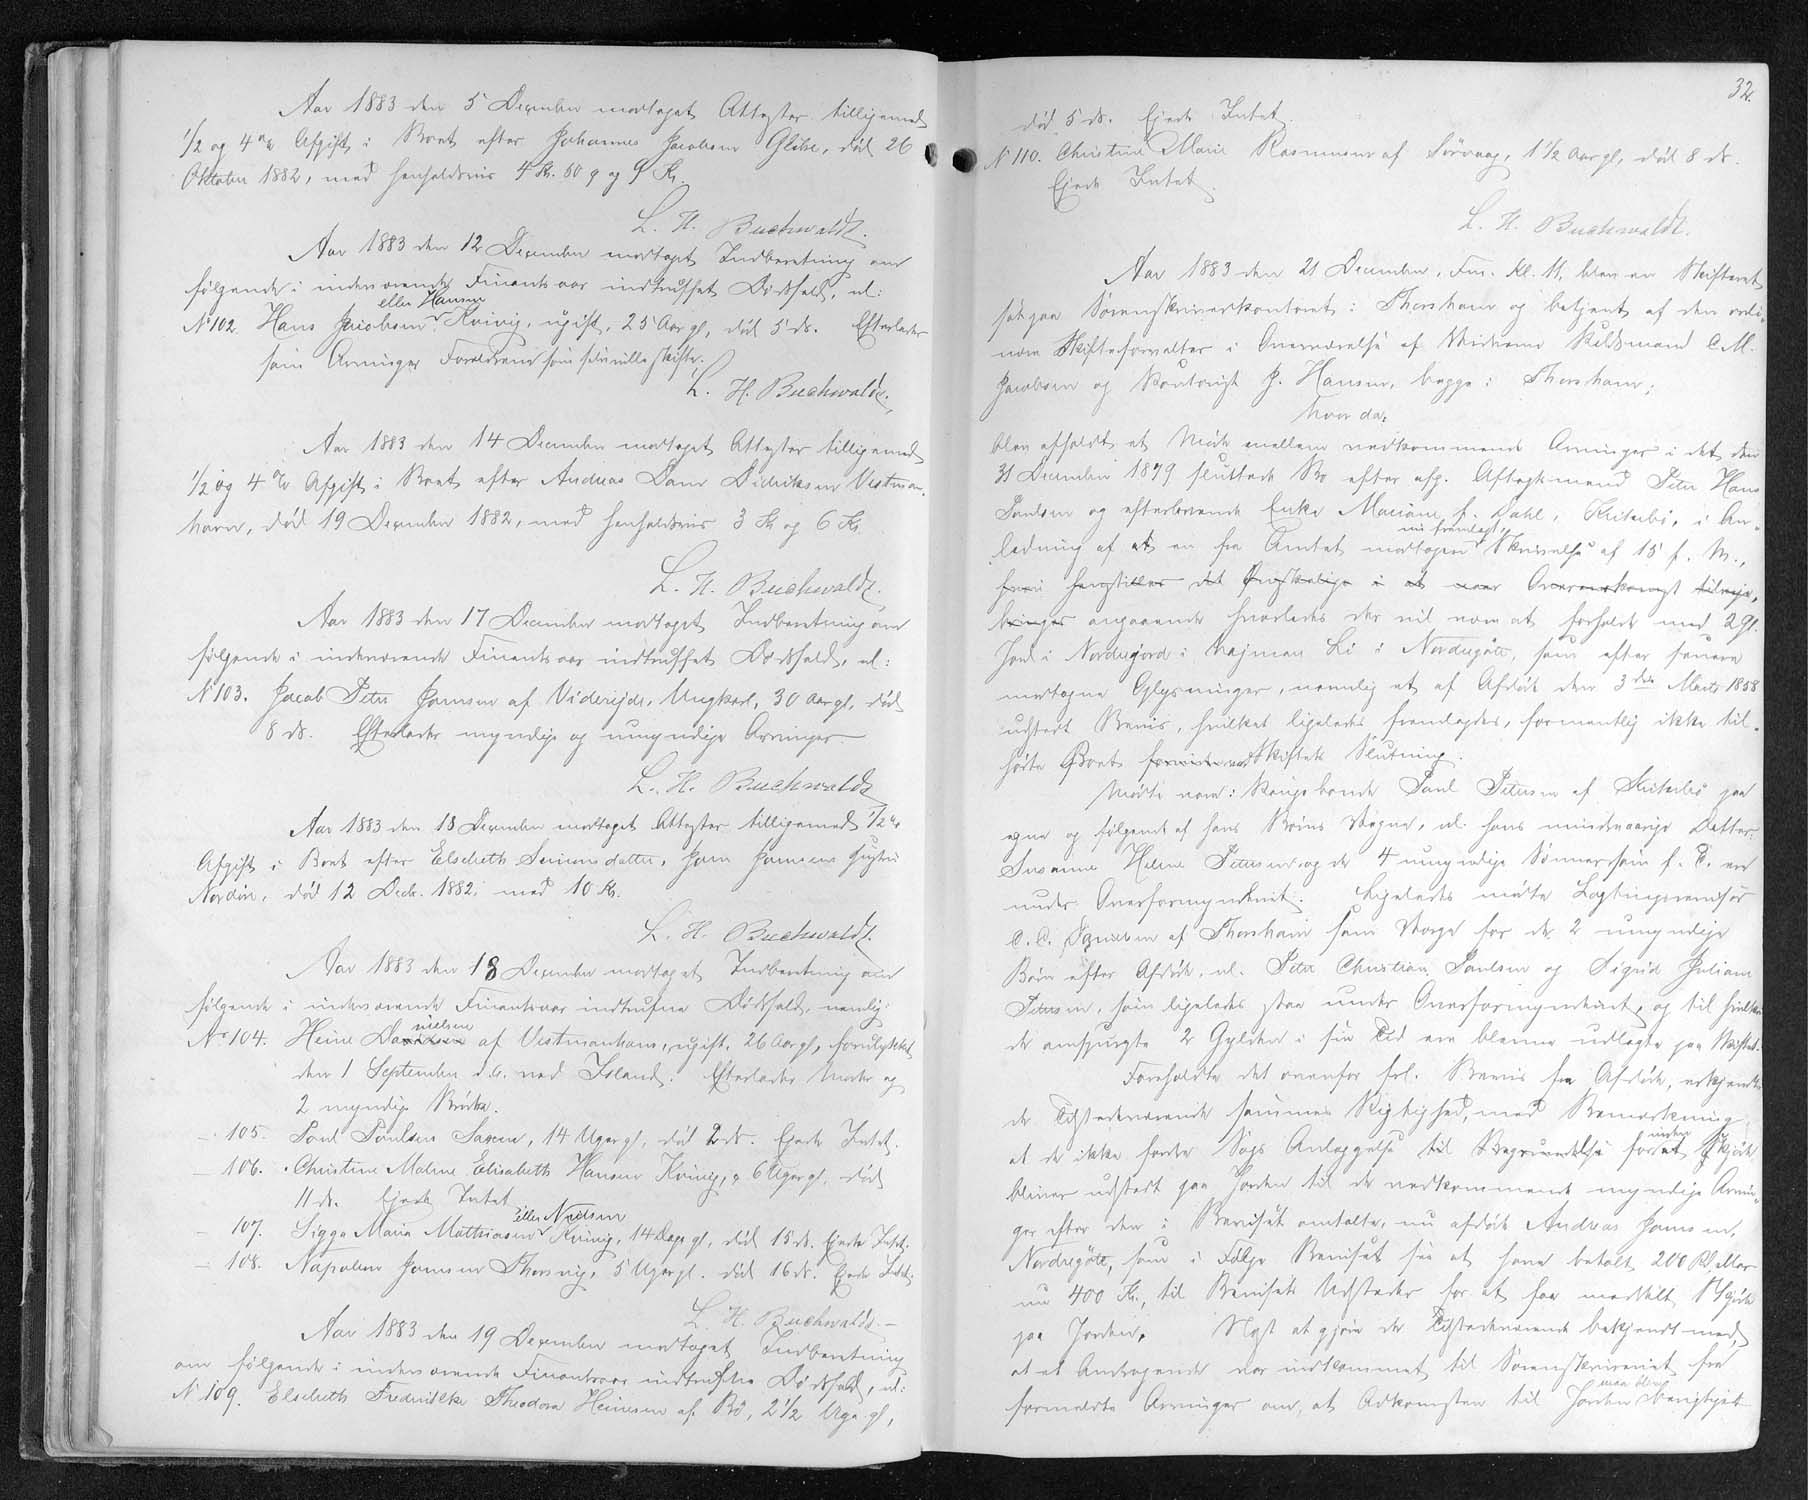 Aar 1883 den 5 December modtaget Attester tilligemed
1/2 og 4 % Afgift i Boet efter Johannes Jacobsen Glibre, død 26
Oktober 1882, med henholdsvis 4 Kr. 50 Ø og 9 Kr.
L. H. Buchwaldt.
Aar 1883 den 12 December modtaget Indberetning om
følgende i indeværende Finantsaar indtruffet Dødsfald, nl:
eller Hansen
No 102. Hans Jacobsen Kvivig, ugift, 25 Aar gl, død 5 ds. Efterlader
som Arvinger Forældrene som selv ville skifte.
L. H. Buchwaldt.
Aar 1883 den 14 December modtaget Attester tilligemed
1/2 og 4 % Afgift i Boet efter Andreas Dam Didriksen Vestman-
havn, død 19 December 1882, med henholdsvis 3 Kr og 6 Kr.
L. H. Buchwaldt.
Aar 1883 den 17 December modtaget Indberetning om
følgende i indeværende Finantsaar indtruffet Dødsfald, nl:
No 103. Jacob Peter Joensen af Viderejde, Ungkarl, 30 Aar gl, død
8 ds. Efterlader myndige og umyndige Arvinger.
L. H. Buchwaldt
Aar 1883 den 18 December modtaget Attester tilligemed 1/2 %
Afgift i Boet efter Elsebeth Simonsdatter, Joen Joensens Hustru
Nordøre, død 12 Decbr. 1882, med 10 Kr.
L. H. Buchwaldt.
Aar 1883 den 18 December modtaget Indberetning om
følgende i indeværende Finantsaar indtrufne Dødsfald, nemlig:
nielsen
No 104. Heine Da af Vestmanhavn, ugift, 26 Aar gl, forulykket
den 1 September d.A. ved Island. Efterlader Moder og
2 myndige Brødre.
— 105. Poul Poulsen Saxen, 14 Uger gl, død 2 ds. Ejede Intet.
— 106. Christine Maline Elisabeth Hansen Kvivig, 6 Uger gl, død
11 ds. Ejede Intet
eller Nielsen
— 107. Sigga Maria Mathiasen Kvivig, 14 Dage gl, død 15 ds. Ejede Intet.
— 108. Napoleon Joensen Thorsvig, 5 Uger gl. død 16 ds. Ejede Intet.
L. H. Buchwaldt.
Aar 1883 den 19 December modtaget Indberetning
om følgende i indeværende Finantsaar indtrufne Dødsfald, nl:
No 109. Elsebeth Fredrikke Theodora Heinesen af Bø, 2 1/2 Uge gl,
32.
død 5 ds. Ejede Intet.
No 110. Christine Marie Rasmussen af Sörvaag, 1 1/2 Aar gl, død 8 ds.
Ejede Intet.
L. H. Buchwaldt.
Aar 1883 den 21 December, Fm. Kl. 11, blev en Skifteret
sat paa Sorenskriverkontoret i Thorshavn og betjent af den ordi-
nære Skifteforvalter i Overværelse af Vidnerne Rådsmand C. M.
Jacobsen og Kontorist J. Hansen, begge i Thorshavn;
hvor da:
blev afholdt et Møde mellem vedkommende Arvinger i det den
31 December 1879 sluttede Bo efter afg. Aftægtsmand Peter Hans
Poulsen og efterlevende Enke Mariane f. Dahl, Kirkebø, i An-
nu fremlagt,
ledning af en fra Amtet modtagen Skrivelse af 15 f. M.,
hvori henstilles det Ønskelige i at Overenskomst tilveje-
bringes angaaende hvorledes der vil være at forholde med 2 Gl.
Jord i Nordrejord i Majman Li i Nordregøte, som efter senere
modtagne Oplysninger, nemlig et af Afdøde den 3die Marts 1858
udstedt Bevis, hvilket ligeledes fremlagdes, formentlig ikke til-
hørte Boet Skiftets Slutning.
Mødte vare: Kongsbonde Poul Petersen af Kirkebø paa
egne og følgende af hans Børns Vegne, nl. hans mindreaarige Datter:
Susanne Helene Petersen og de 4 umyndige Sønner som f. T. ere
under Overformynderiet. Ligeledes mødte Lagtingsrevisor
af Thorshavn som Værge for de 2 umyndige
Børn efter Afdøde, nl. Peter Christian Poulsen og Sigrid Juliane
Petersen, som ligeledes staa under Overformynderiet, og til hvilke
de omspurgte 2 Gylden i sin Tid ere blevne udlagte paa Skiftet.
Foreholdte det ovenfor frl. Bevis fra Afdøde, erkjendte
de Tilstedeværende sammes Rigtighed, med Bemærkning
inden
at de ikke fordre Sags Anlæggelse til Begrundelse for at Skjøde
bliver udstedt paa Jorden til de vedkommende myndige Arvin-
ger efter den i Beviset omtalte, nu afdøde Andreas Joensen,
Nordregøte, som i Følge Beviset ses at have betalt 200 Rdler
nu 400 Kr., til Bevisets Udsteder for at faa meddelt Skjøde
paa Jorden. Næst at gjøre de Tilstedeværende bekjendt med,
at et Andragende var indkommet til Sorenskriveriet fra
maa blive
formeldte Arvinger om, at Adkomsten til Jorden